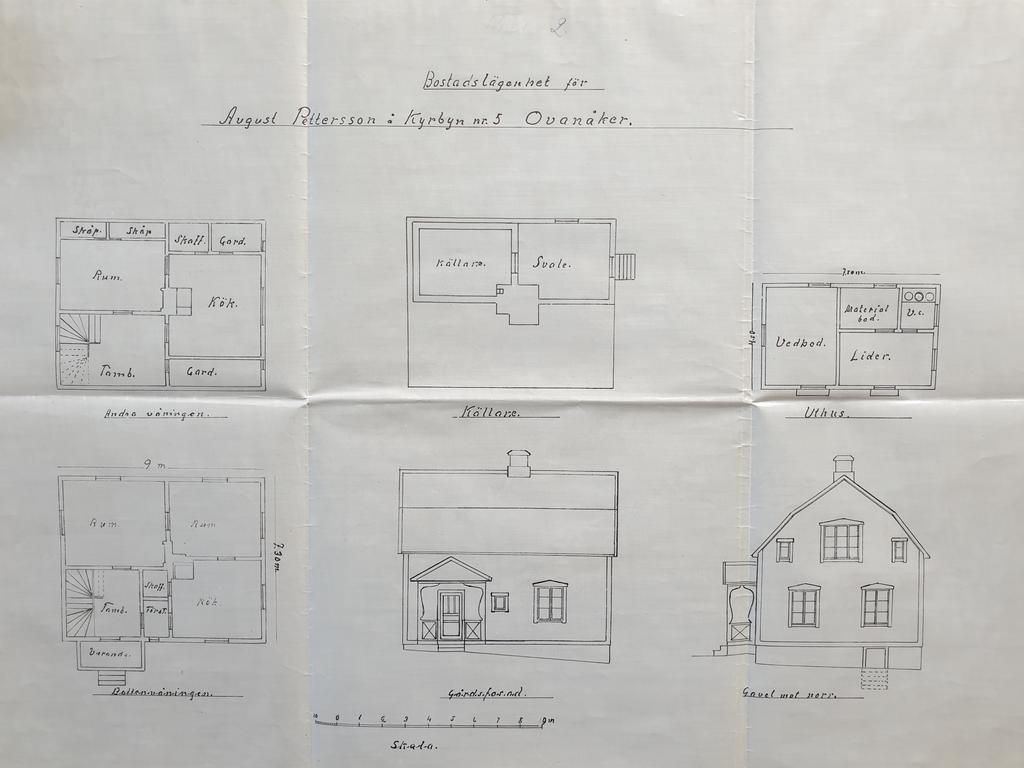 2
Bostadslägenhet för
August Pettersson å Kyrbyn nr. 5 Ovanåker.
Skåp. Skåp
Skaff. Gard.
Rum.
Kök.
Tamb.
Gard.
Andra våningen.
Källare. Svale.
Källare.
7,20m
Vedbod.
Material bod.
V.c.
Lider.
Uthus.
9 m
7,30 m
Rum. Rum
Skaff.
Tamb.
Först.
Kök.
Veranda.
Bottenvåningen.
Gårdsfasad.
Gavel mot norr.
10 0 1 2 3 4 5 6 7 8 9m
Skala.